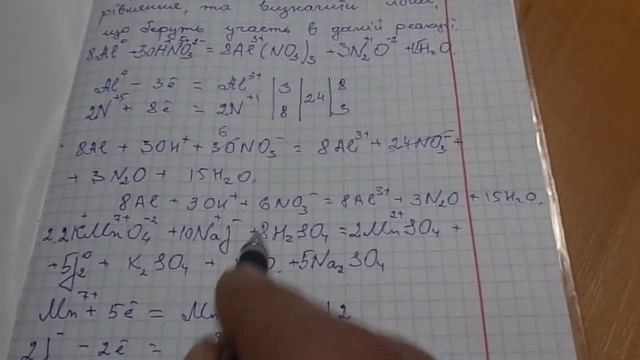 рівняння, та визначити йони,
що беруть участь в даній реакції.
8Al⁰ + 30HN⁺⁵O₃⁻² = 8Al³⁺(NO₃)₃ + 3N₂⁺¹O⁻² + 15H₂O
Al⁰ – 3ē = Al³⁺ | 3 | 24 | 8
2N⁺⁵ + 8ē = 2N⁺¹ | 8 | | 3
8Al + 30H⁺ + 30NO₃⁻ = 8Al³⁺ + 24NO₃⁻ +
+ 3N₂O + 15H₂O.
8Al + 30H⁺ + 6NO₃⁻ = 8Al³⁺ + 3N₂O + 15H₂O.
2. 2K⁺Mn⁷⁺O₄⁻² + 10Na⁺J⁻ + 8H₂SO₄ = 2Mn²⁺SO₄ +
+ 5J₂⁰ + K₂SO₄ + O. + 5Na₂SO₄
Mn⁷⁺ + 5ē = Mn 2
2J⁻ – 2ē =